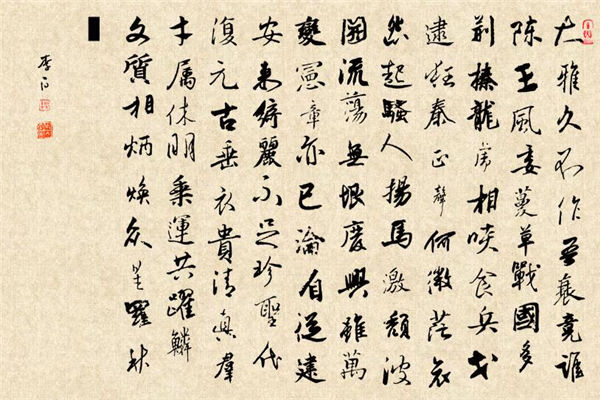 大雅久不作吾衰竟誰
陳王風委蔓草戰國多
荊榛龍虎相啖食兵戈
逮狂秦正聲何微茫哀
怨起騷人揚馬激頹波
開流蕩無垠廢興雖萬
變憲章亦已淪自從建
安來綺麗不足珍聖代
復元古垂衣貴清真羣
才属休明乘運共躍鱗
文質相炳煥众星羅秋
李白